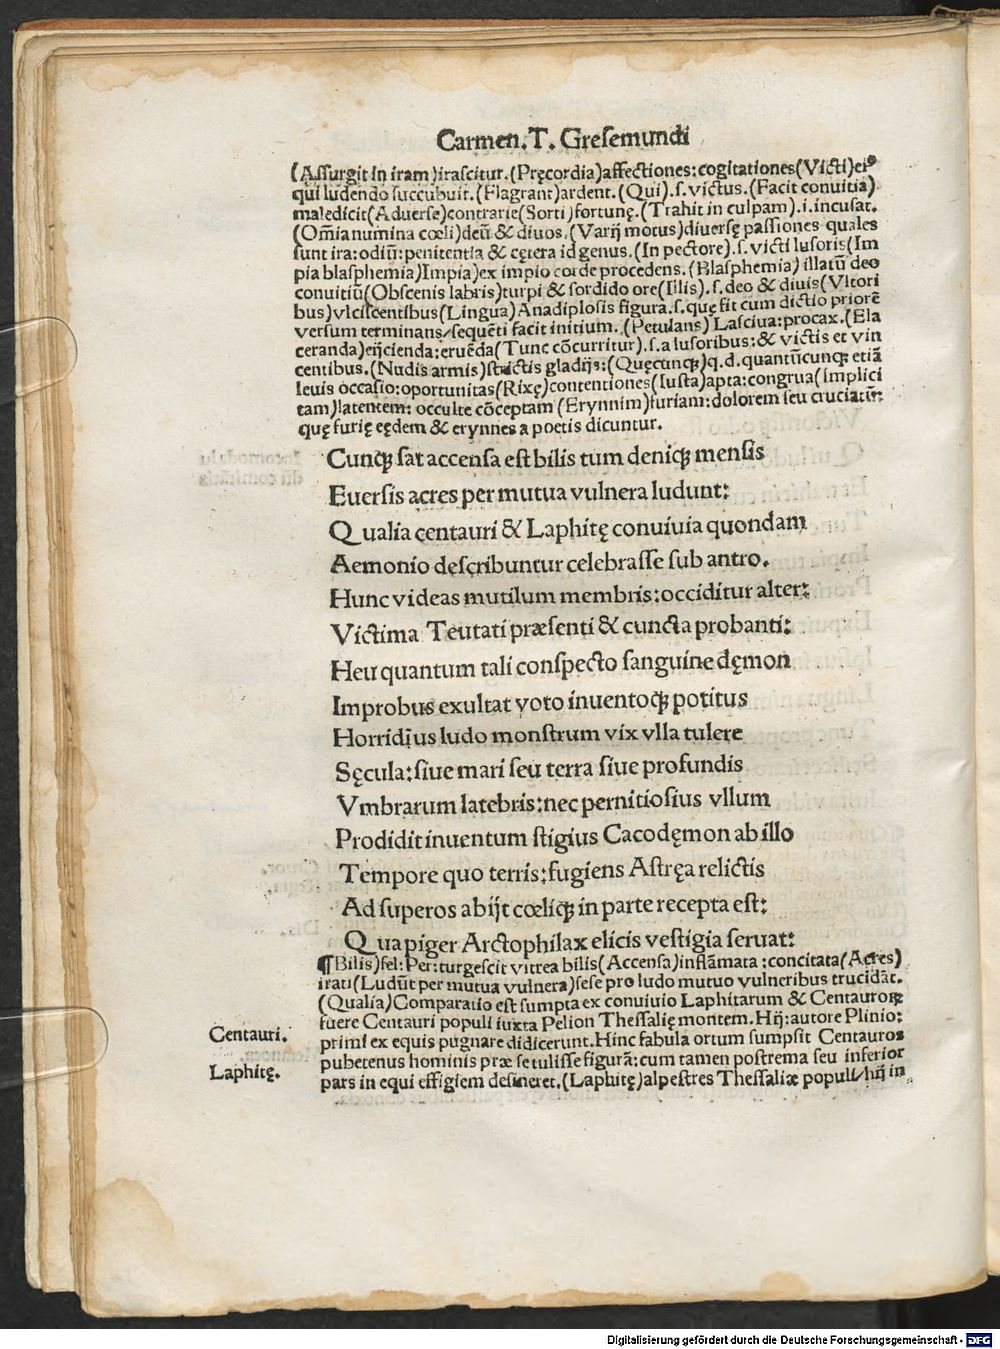 Carmen. T. Gresemundi
(Assurgit in iram)irascitur.(Pręcordia)affectiones:cogitationes(Victi)eiꝰ
qui ludendo succubuit.(Flagrant)ardent.(Qui).s.victus.(Facit conuitia)
maledicit(Aduerse)contrarie(Sorti)fortunę.(Trahit in culpam).i.incusat.
(Om̃ia numina cœli)deū & diuos.(Varij motus)diuersę passiones quales
sunt ira:odiū:penitentia & cętera id genus.(In pectore).s.victi lusoris(Im
pia blasphemia)Impia)ex impio corde procedens.(Blasphemia)illatū deo
conuitiū(Obscenis labris)turpi & sordido ore(Illis).s.deo & diuis(Vltori
bus)vlciscentibus(Lingua)Anadiplosis figura.s.quę fit cum dictio priorē
versum terminans/sequēti facit initium.(Petulans)Lasciua:procax.(Ela
ceranda)eijcienda:eruēda(Tunc cōcurritur).s.a lusoribus:& victis et vin
centibus.(Nudis armis)strictis gladijs:(Quęcunqꝫ)q.d.quantūcunqꝫ etiā
leuis occasio:oportunitas(Rixę)contentiones(Iusta)apta:congrua(Implici
tam)latentem: occulte cōceptam(Erynnim)furiam:dolorem seu cruciatū:
quę furię eędem & erynnes a poetis dicuntur.
Cunqꝫ sat accensa est bilis tum deniqꝫ mensis
Euersis acres per mutua vulnera ludunt:
Qualia centauri & Laphitę conuiuia quondam
Aemonio describuntur celebrasse sub antro.
Hunc videas mutilum membris:occiditur alter:
Victima Teutati præsenti & cuncta probanti:
Heu quantum tali conspecto sanguine dęmon
Improbus exultat voto inuentoqꝫ potitus
Horridius ludo monstrum vix vlla tulere
Sęcula:siue mari seu terra siue profundis
Vmbrarum latebris:nec pernitiosius vllum
Prodidit inuentum stigius Cacodęmon ab illo
Tempore quo terris:fugiens Astręa relictis
Ad superos abijt cœliqꝫ in parte recepta est:
Qua piger Arctophilax elicis vestigia seruat:
¶Bilis)fel:Per:turgescit vitrea bilis(Accensa)inflāmata:concitata(Acres)
irati(Ludūt per mutua vulnera)sese pro ludo mutuo vulneribus trucidāt.
(Qualia)Comparatio est sumpta ex conuiuio Laphitarum & Centauroꝝ
fuere Centauri populi iuxta Pelion Thessalię montem.Hij:autore Plinio:
Centauri.
primi ex equis pugnare didicerunt.Hinc fabula ortum sumpsit Centauros
pubetenus hominis præ se tulisse figurā:cum tamen postrema seu inferior
Laphitę.
pars in equi effigiem desineret.(Laphitę)alpestres Thessaliæ populi/hij in
Digitalisierung gefördert durch die Deutsche Forschungsgemeinschaft - DFG